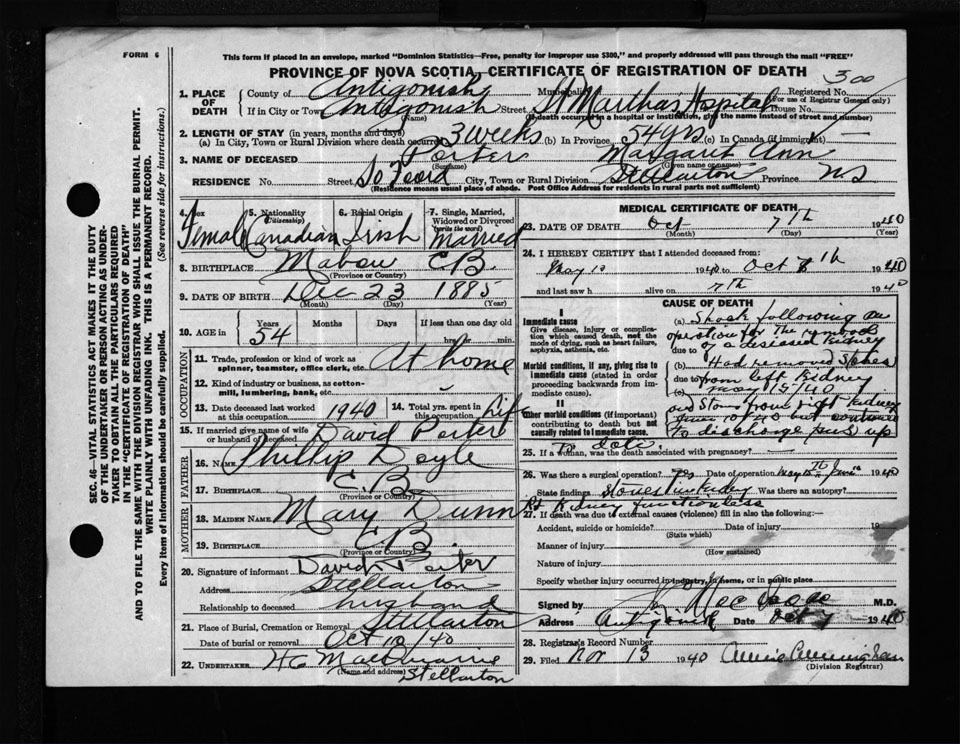 FORM 6
This form if placed in an envelope, marked "Dominion Statistics—Free, penalty for improper use $300," and properly addressed will pass through the mail "FREE"
PROVINCE OF NOVA SCOTIA, CERTIFICATE OF REGISTRATION OF DEATH
300
SEC. 46—VITAL STATISTICS ACT MAKES IT THE DUTY
OF THE UNDERTAKER OR PERSON ACTING AS UNDER-
TAKER TO OBTAIN ALL THE PARTICULARS REQUIRED
IN THE "CERTIFICATE OF REGISTRATION OF DEATH"
AND TO FILE THE SAME WITH THE DIVISION REGISTRAR WHO SHALL ISSUE THE BURIAL PERMIT.
WRITE PLAINLY WITH UNFADING INK. THIS IS A PERMANENT RECORD.
Every item of information should be carefully supplied. (See reverse side for instructions.)
1. PLACE OF DEATH County of Antigonish Municipality Registered No.
(For use of Registrar General only)
If in City or Town Antigonish Street St Martha's Hospital House No.
(Name) (If death occurred in a hospital or institution, give the name instead of street and number)
2. LENGTH OF STAY (in years, months and days)
(a) In City, Town or Rural Division where death occurred 3 weeks (b) In Province 54 yrs. (c) In Canada (if immigrant)
3. NAME OF DECEASED Porter Margaret Ann
(Surname) (Given name or names)
RESIDENCE No. Street City, Town or Rural Division Stellarton Province NS
(Residence means usual place of abode. Post Office Address for residents in rural parts not sufficient)
4. Sex 5. Nationality (Citizenship) 6. Racial Origin 7. Single, Married, Widowed or Divorced (write the word)
Female Canadian Irish Married
8. BIRTHPLACE Mabou C.B.
(Province or Country)
9. DATE OF BIRTH Dec 23 1885
(Month) (Day) (Year)
10. AGE in Years Months Days If less than one day old
54 hrs. or min.
OCCUPATION
11. Trade, profession or kind of work as spinner, teamster, office clerk, etc. At home
12. Kind of industry or business, as cotton-mill, lumbering, bank, etc. -
13. Date deceased last worked at this occupation 1940 14. Total yrs. spent in this occupation Life
15. If married give name of wife or husband of deceased David Porter
FATHER
16. NAME Phillip Doyle
17. BIRTHPLACE C.B.
(Province or Country)
MOTHER
18. MAIDEN NAME Mary Dunn
19. BIRTHPLACE C.B.
(Province or Country)
20. Signature of informant David Porter
Address Stellarton
Relationship to deceased husband
21. Place of Burial, Cremation or Removal Stellarton
Date of burial or removal Oct 10/40
22. UNDERTAKER
(Name and address) Stellarton
MEDICAL CERTIFICATE OF DEATH
23. DATE OF DEATH Oct 7th 1940
(Month) (Day) (Year)
24. I HEREBY CERTIFY that I attended deceased from:
May 1940 to Oct 1940
and last saw h alive on 7th 1940
CAUSE OF DEATH
I
Immediate cause
Give disease, injury or complication which caused death, not the mode of dying, such as heart failure, asphyxia, asthenia, etc.
(a) Shock following an
operation for the removal
due to of a diseased kidney
Morbid conditions, if any, giving rise to immediate cause (stated in order proceeding backwards from immediate cause).
(b) Had removed stones
due to from left kidney
(c) May 15/40
II
Other morbid conditions (if important) contributing to death but not causally related to immediate cause.
and stone from right kidney
but continued
to discharge pus up
to date.
25. If a woman, was the death associated with pregnancy? —
26. Was there a surgical operation? Yes Date of operation May 15th 1940
State findings Stones in kidney Was there an autopsy?
Rt Kidney functionless
27. If death was due to external causes (violence) fill in also the following:—
Accident, suicide or homicide? Date of injury 19
(State which)
Manner of injury
(How sustained)
Nature of injury
Specify whether injury occurred in industry, in home, or in public place
Signed by M.D.
Address Antigonish Date Oct 1940
28. Registrar's Record Number
29. Filed Nov 13 1940 Annie Cunningham
(Division Registrar)